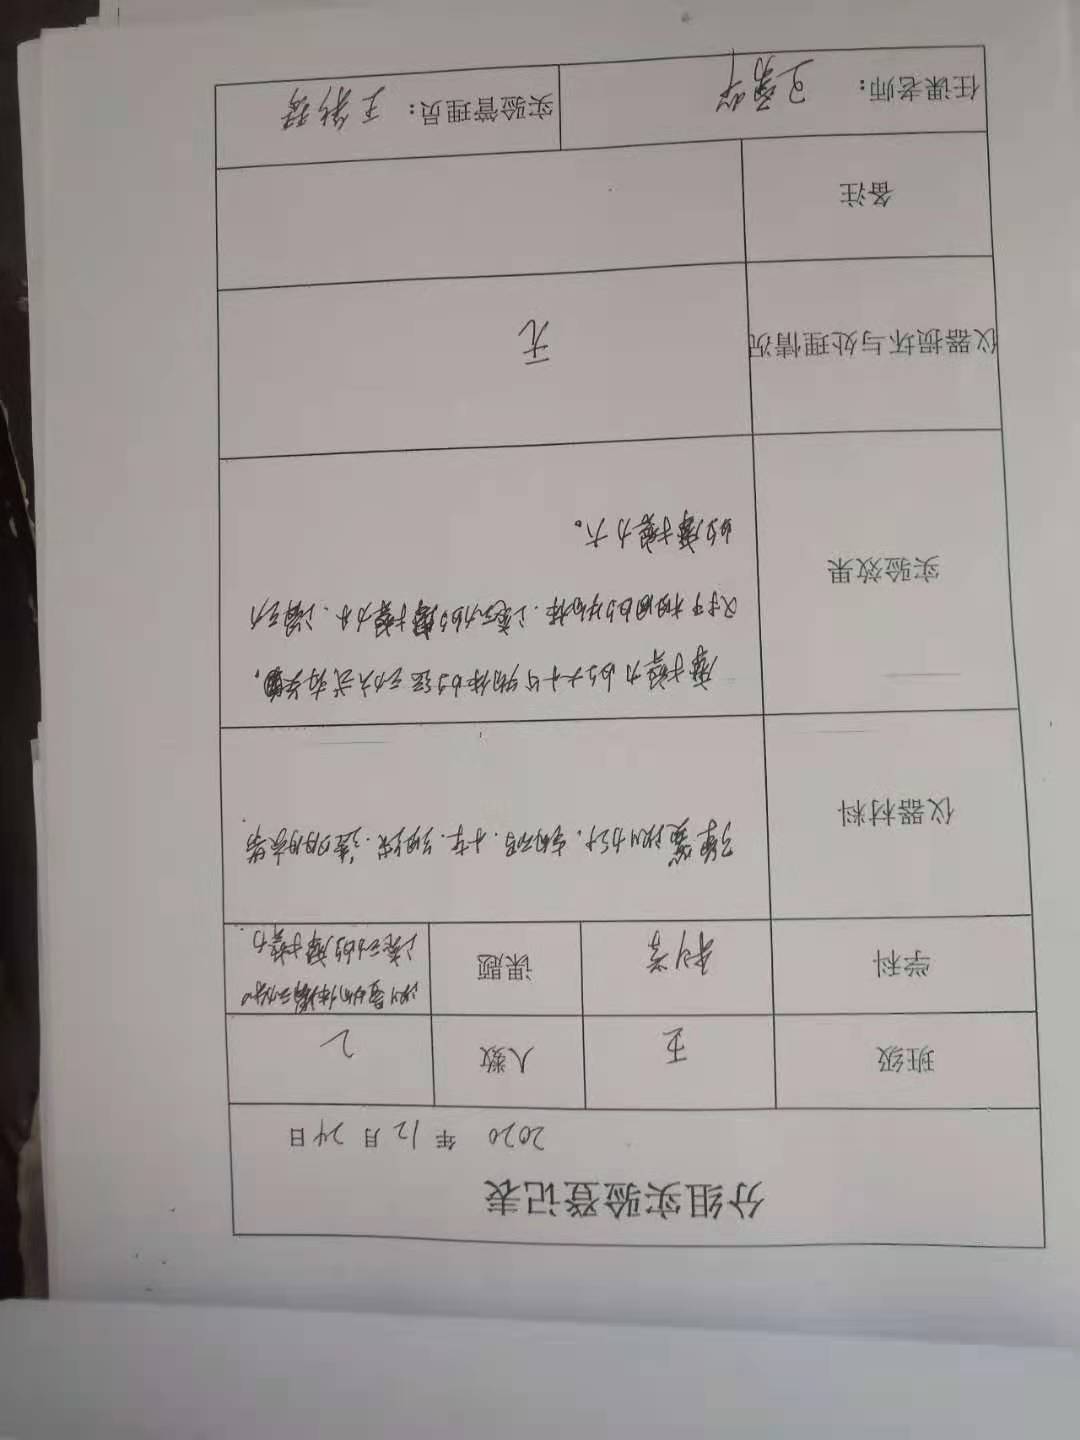 分组实验登记表
2020 年 12 月 24 日
班级 五 人数 2
学科 科学 课题 测量物体滑动和
滚动的摩擦力
仪器材料 弹簧测力计、小车、细线、
实验效果 摩擦力的大小与物体的运动方式有关。
对于相同的物体、滚动的摩擦力小、滑动
的摩擦力大。
仪器损坏与处理情况 无
备注
任课老师: 实验管理员: 王